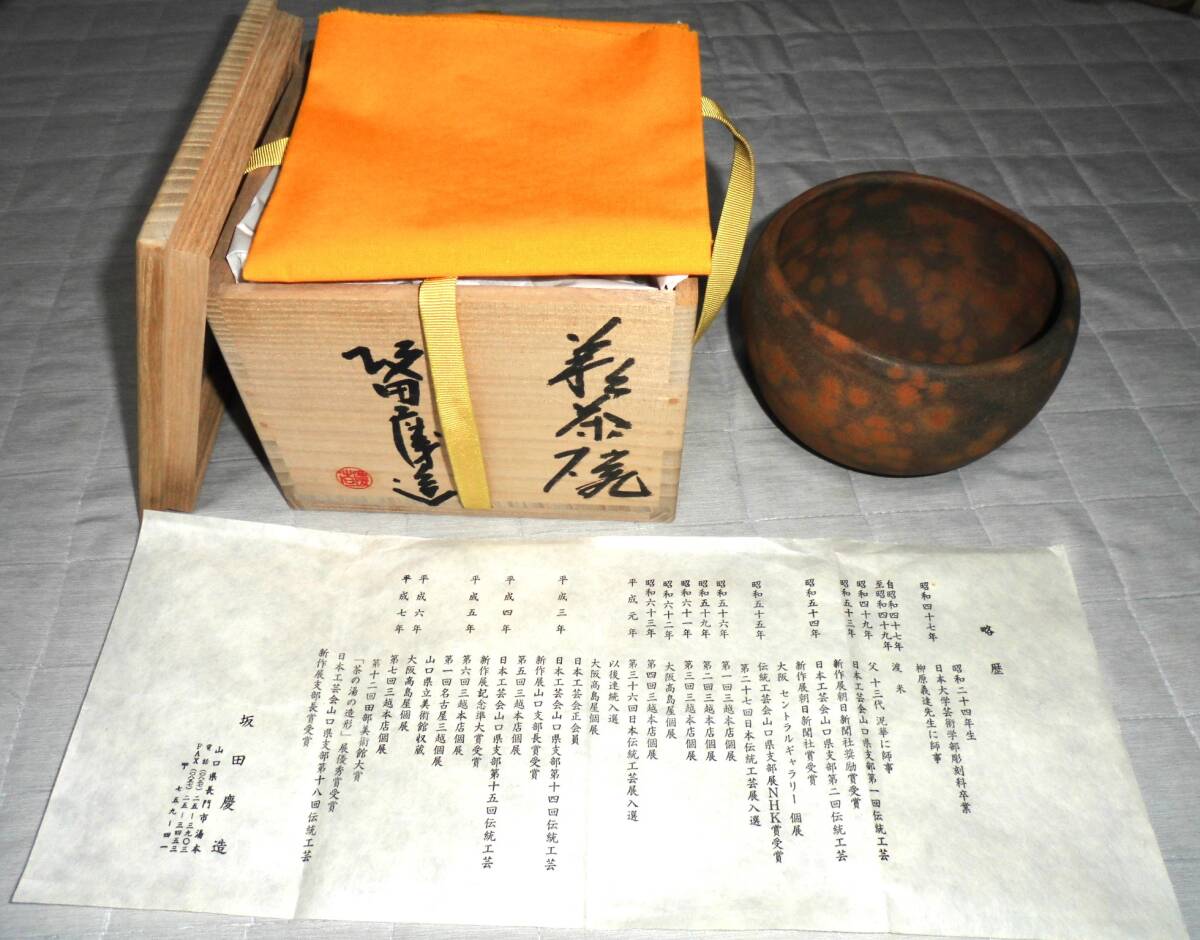 萩茶碗
坂田慶造
略歴
昭和二十四年生
昭和四十七年 日本大学芸術学部彫刻科卒業
柳原義達先生に師事
自昭和四十七年
至昭和四十九年 渡米
昭和四十九年 父 十三代 泥華に師事
昭和五十三年 日本工芸会山口県支部第一回伝統工芸
新作展朝日新聞社奨励賞受賞
昭和五十四年 日本工芸会山口県支部第二回伝統工芸
新作展朝日新聞社賞受賞
大阪 セントラルギャラリー 個展
昭和五十五年 伝統工芸会山口県支部展NHK賞受賞
第二十七回日本伝統工芸展入選
昭和五十六年 第一回三越本店個展
昭和五十九年 第二回三越本店個展
昭和六十一年 第三回三越本店個展
昭和六十二年 大阪高島屋個展
昭和六十三年 第四回三越本店個展
平成元年 第三十六回日本伝統工芸展入選
以後連続入選
大阪高島屋個展
平成三年 日本工芸会正会員
日本工芸会山口県支部第十四回伝統工芸
新作展山口支部長賞受賞
平成四年 第五回三越本店個展
日本工芸会山口県支部第十五回伝統工芸
平成五年 新作展記念準大賞受賞
第六回三越本店個展
第一回名古屋三越個展
平成六年 山口県立美術館収蔵
平成七年 大阪高島屋個展
第七回三越本店個展
第十二回田部美術館大賞
「茶の湯の造形」展優秀賞受賞
日本工芸会山口県支部第十八回伝統工芸
新作展支部長賞受賞
坂田慶造
山口県長門市湯本
電話(〇八三七)二五-三九〇三
FAX(〇八三七)二五-三四五三
〒七五九-四一